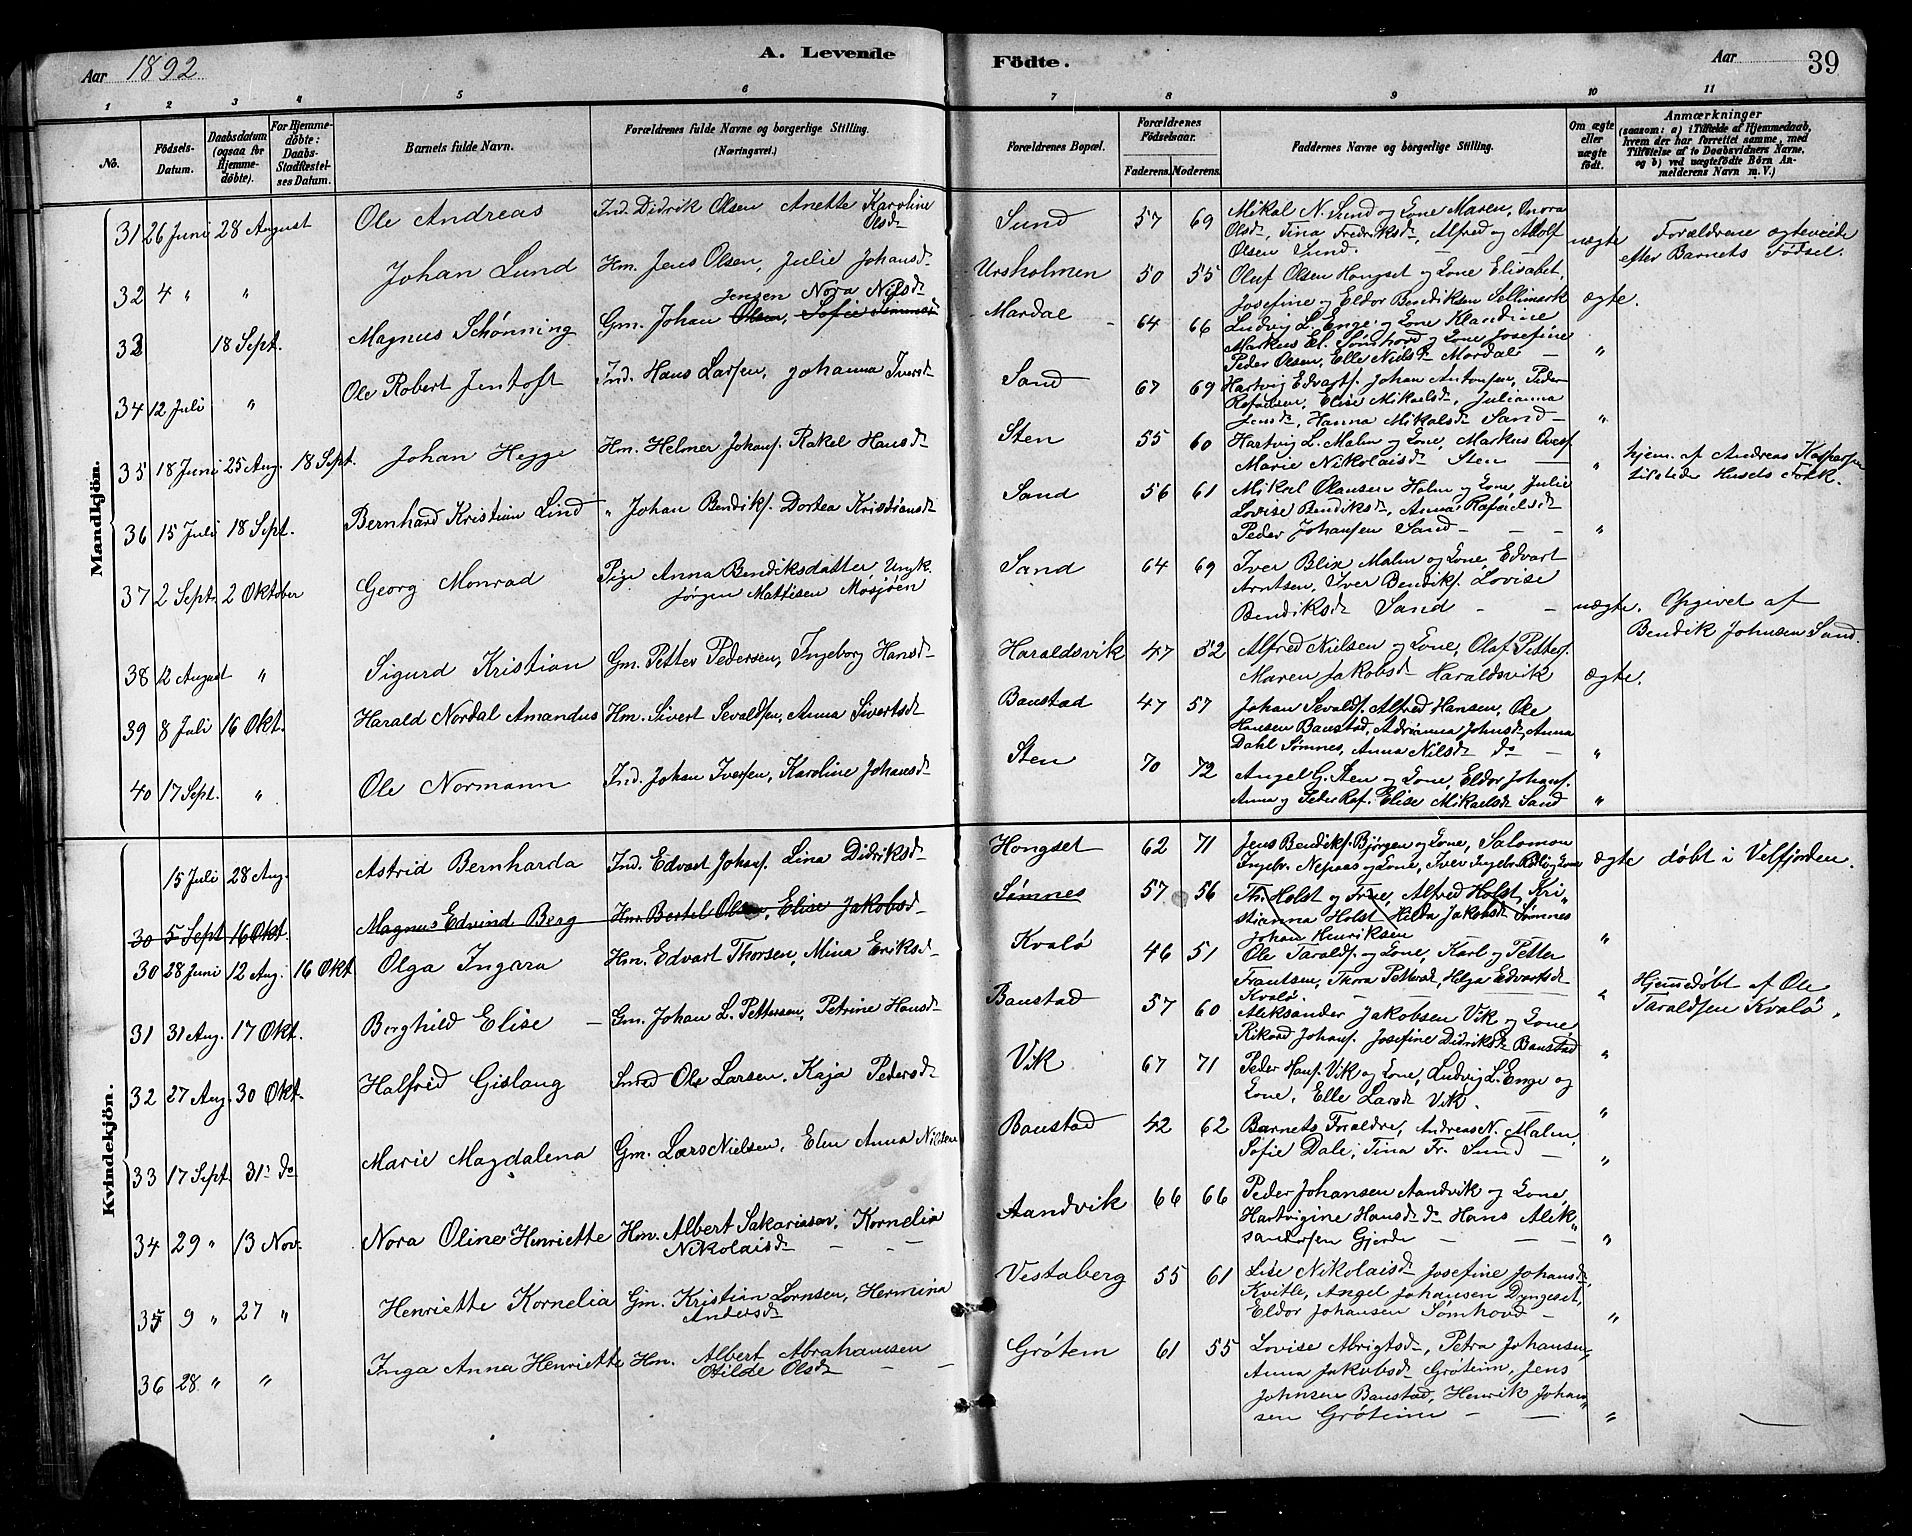 Aar 1892
A. Levende
Födte.
Aar 39
1 2 3 4 5 6 7 8 9 10 11
No.
Fødsels-Datum.
Daabsdatum (ogsaa for Hjemme-döbte).
For Hjemme-döbte: Daabs-Stadfæstel-ses Datum.
Barnets fulde Navn.
Forældrenes fulde Navne og borgerlige Stilling. (Næringsvei.)
Forældrenes Bopæl.
Forældrenes Födselsaar.
Faderens. Moderens.
Faddernes Navne og borgerlige Stilling.
Om ægte eller uægte födt.
Anmærkninger (saasom: a) i Tilfælde af Hjemmedaab, hvem der har forrettet samme, med Tilføielse af to Daabsvidners Navne, og b) ved uægtefödte Börn Anmelderens Navn m. V.)
Mandkjön.
31 26 Juni 28 August Ole Andreas Ind. Didrik Olsen Anette Karoline Olsdr Sund 57 69 Mikal N. Sund og Kone Maren, Olsdr, Tina Fredriksdr, Alfred og Adolf Olsen Sund. uægte Forældrene egteviede efter Barnets Födsel.
32 4 " " Johan Lund Hm. Jens Olsen, Julie Johansdr Ursholmen 50 55 Oluf Olsen Hongset og Kone Elisabet, Josefine og Eldor Bendiksen Sellimork ægte.
33 18 Sept. Magnus Schønning Gm. Johan Olsen, Sofie Simmes Jensen Nora Nilsdr Mardal 64 66 Ludvig L. Enge og Kone Klaudine Markus El. Sømhovd og Kone Josefine Peder Olsen, Elle Nielsdr Mardal "
34 12 Juli " Ole Robert Jentoft Ind. Hans Larsen, Johanna Iversdr Sand 67 69 Hartvig Edvartsf. Johan Antonsen, Peder Rafaelsen, Elise Mikaelsdr, Julianna Jensdr, Hanna Mikalsdr Sand "
35 18 Juni 25 Aug. 18 Sept. Johan Hegge Hm. Helmer Johansf. Rakel Hansdr Sten 55 60 Hartvig L. Malm og Kone, Markus Marie Nikolaisdr Sten " hjem. af Andreas Kaspersen tilstede Husets Folk.
36 15 Juli 18 Sept. Bernhard Kristian Lind " Johan Bendiksf. Dortea Kristiansdr Sand 56 61 Mikal Olausen Holm og Kone, Julie Lovise Bendiksdr, Anna Rafaelsdr Peder Johansen Sand "
37 2 Sept. 2 Oktober Georg Monrad Pige Anna Bendiksdatter Ungk. Jørgen Mattisen Mosjøen Sand 64 69 Iver Blix Malm og Kone Edvart Arntsen, Iver Bendiksf. Lovise Bendiksdr Sand uægte. Opgivet af Bendik Johnsen Sand.
38 12 August " Sigurd Kristian Gm. Petter Pedersen, Ingeborg Hansdr Haraldsvik 47 52 Alfred Nielsen og Kone, Olaf Pettersf. Maren Jakobsdr Haraldsvik ægte.
39 8 Juli 16 Okt. Harald Nordal Amandus Hm. Sivert Sevaldsen, Anna Sivertsdr Baustad 47 57 Johan Sevaldsf. Alfred Hansen, Ole Hansen Baustad, Adrianna Johnsdr, Anna Dahl Sømnes, Anna Nilsdr do "
40 17 Sept. " Ole Normann Ind. Johan Iversen, Karoline Johansdr Sten 70 72 Angel G. Sten og Kone, Eldor Johansf. Anna og Peder Raf. Elise Mikaelsdr Sand "
Kvindekjön.
15 Juli 28 Aug. Astrid Bernharda Ind. Edvart Johansf. Lina Didriksdr Hongset 62 71 Jens Bendiksf. Bjørgen og Kone, Salomon Ingebr. Nepaas og Kone, Iver Ingebr. og Kone ægte döbt i Velfjorden.
30 5 Sept 16 Okt. Magnus Edvind Berg Hm. Bertel Olsen, Elise Jakobsdr Sømnes 57 56 Th. Holst og Frue, Alfred Holst, Kristianna Holst Hilda Jakobsdr Sømnes Johan Henriksen "
30 28 Juni 12 Aug. 16 Okt. Olga Ingara Hm. Edvart Thorsen, Mina Eriksdr Kvalø 46 51 Ole Taraldsf. og Kone, Karl og Petter Frantsen, Thora Pettersdr, Helga Edvartsdr Kvalø. " Hjemmedöbt af Ole Taraldsen Kvalö.
31 31 Aug. 17 Okt. Borghild Elise Gm. Johan L. Pettersen, Petrine Hansdr Baustad 57 60 Aleksander Jakobsen Vik og Kone, Rikard Johansf. Josefine Didriksdr Baustad "
32 27 Aug. 30 Okt. Halfrid Gislaug Ole Larsen. Kaja Pedersdr Vik 67 71 Peder Hansf. Vik og Kone, Ludvig L. Enge og Kone, Elle Larsdr Vik. "
33 17 Sept. 31 do Marie Magdalena Gm. Lars Nielsen, Elen Anna Nilsen Baustad 42 62 Barnets Foraldre, Andreas N. Malm, Sofie Dale, Tina Fr. Sund "
34 29 " 13 Nov. Nora Oline Henriette Hm. Albert Sakariassen, Kornelia Nikolaisdr Aandvik 66 66 Peder Johansen Aandvik og Kone, Hartvigine Hansdr do Hans Aliksandersen Gjerde "
35 9 " 27 " Henriette Kornelia Gm. Kristian Lornsen, Hermina Andersdr Vestaberg 55 61 Lise Nikolaisdr Josefine Johansdr Kvitle, Angel Johansen Dyngeset, Eldor Johansen Sømhovd "
36 28 " " Inga Anna Henriette Hm. Albert Abrahamsen Otilde Olsdr Grøtem 61 55 Lovise Abrigtsdr, Petra Johansen, Anna Jakobsdr Grøteim, Jens Johnsen Baustad, Henrik Johansen Grøteim "